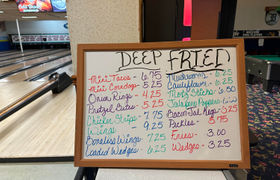 DEEP FRIED
Mini Tacos - 6.75
Mini Corndogs - 5.25
Onion Rings - 5.25
Pretzel Bites - 5.25
Chicken Strips - 7.75
Wings - 9.25
Boneless Wings - 7.25
Loaded Wedges - 6.25
Mushrooms - 6.25
Cauliflower - 6.25
Mozz Sticks - 6.50
Jalapeno Poppers - 6.25
Pickles - 5.75
Fries - 3.00
Wedges - 3.25